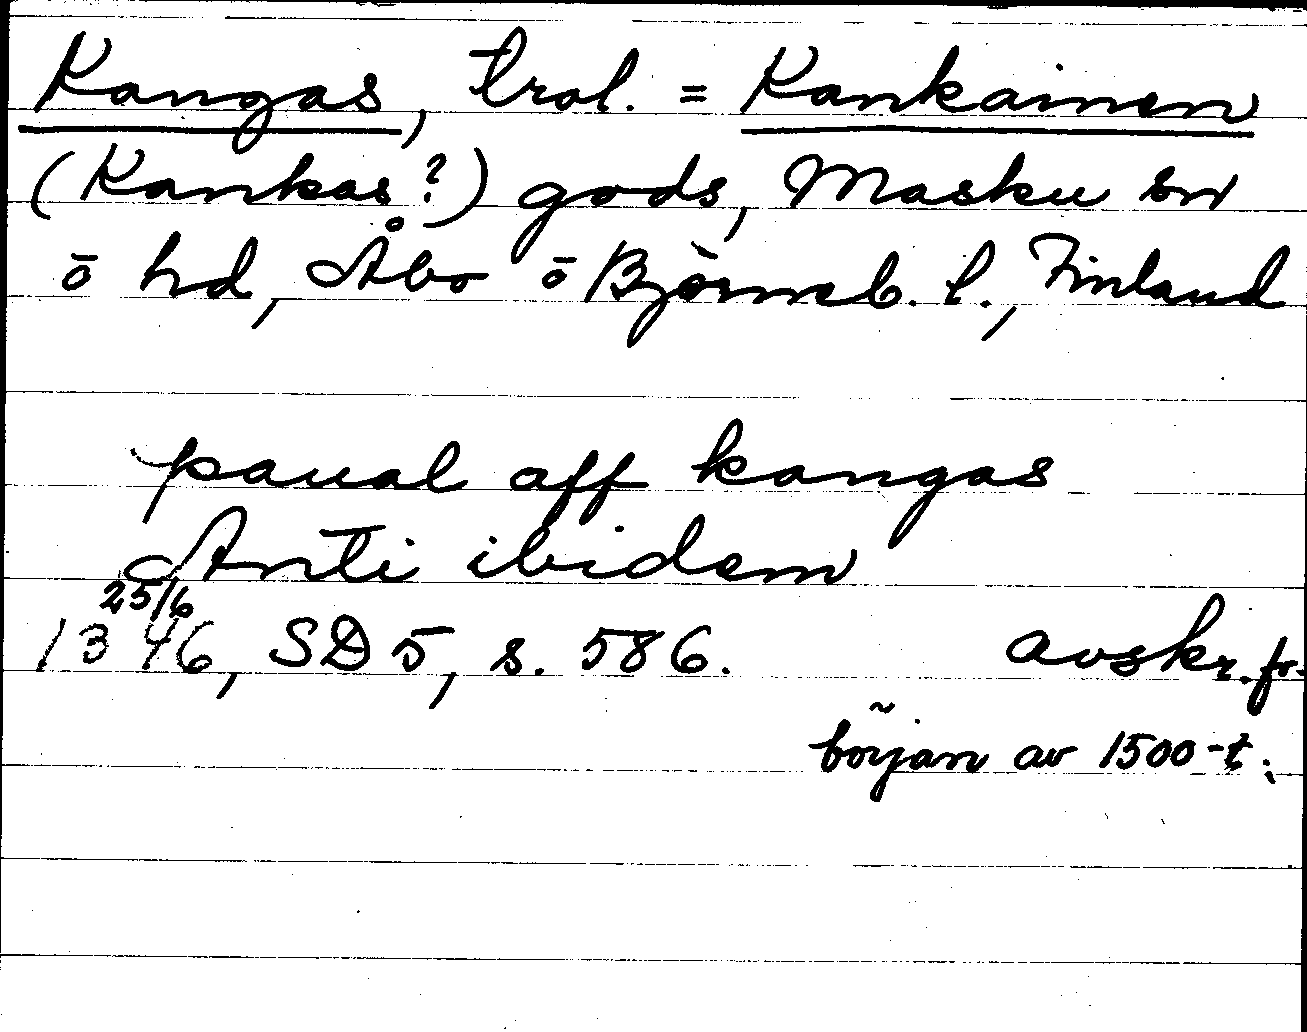 Kangas, trol. = Kankainen
(Kankas?) gods, Masku sn
o hd, Åbo o Björneb. l., Finland
paual aff kangas
Anti ibidem
25/6
1346, SD 5, s. 586. avskr. fr.
början av 1500-t.